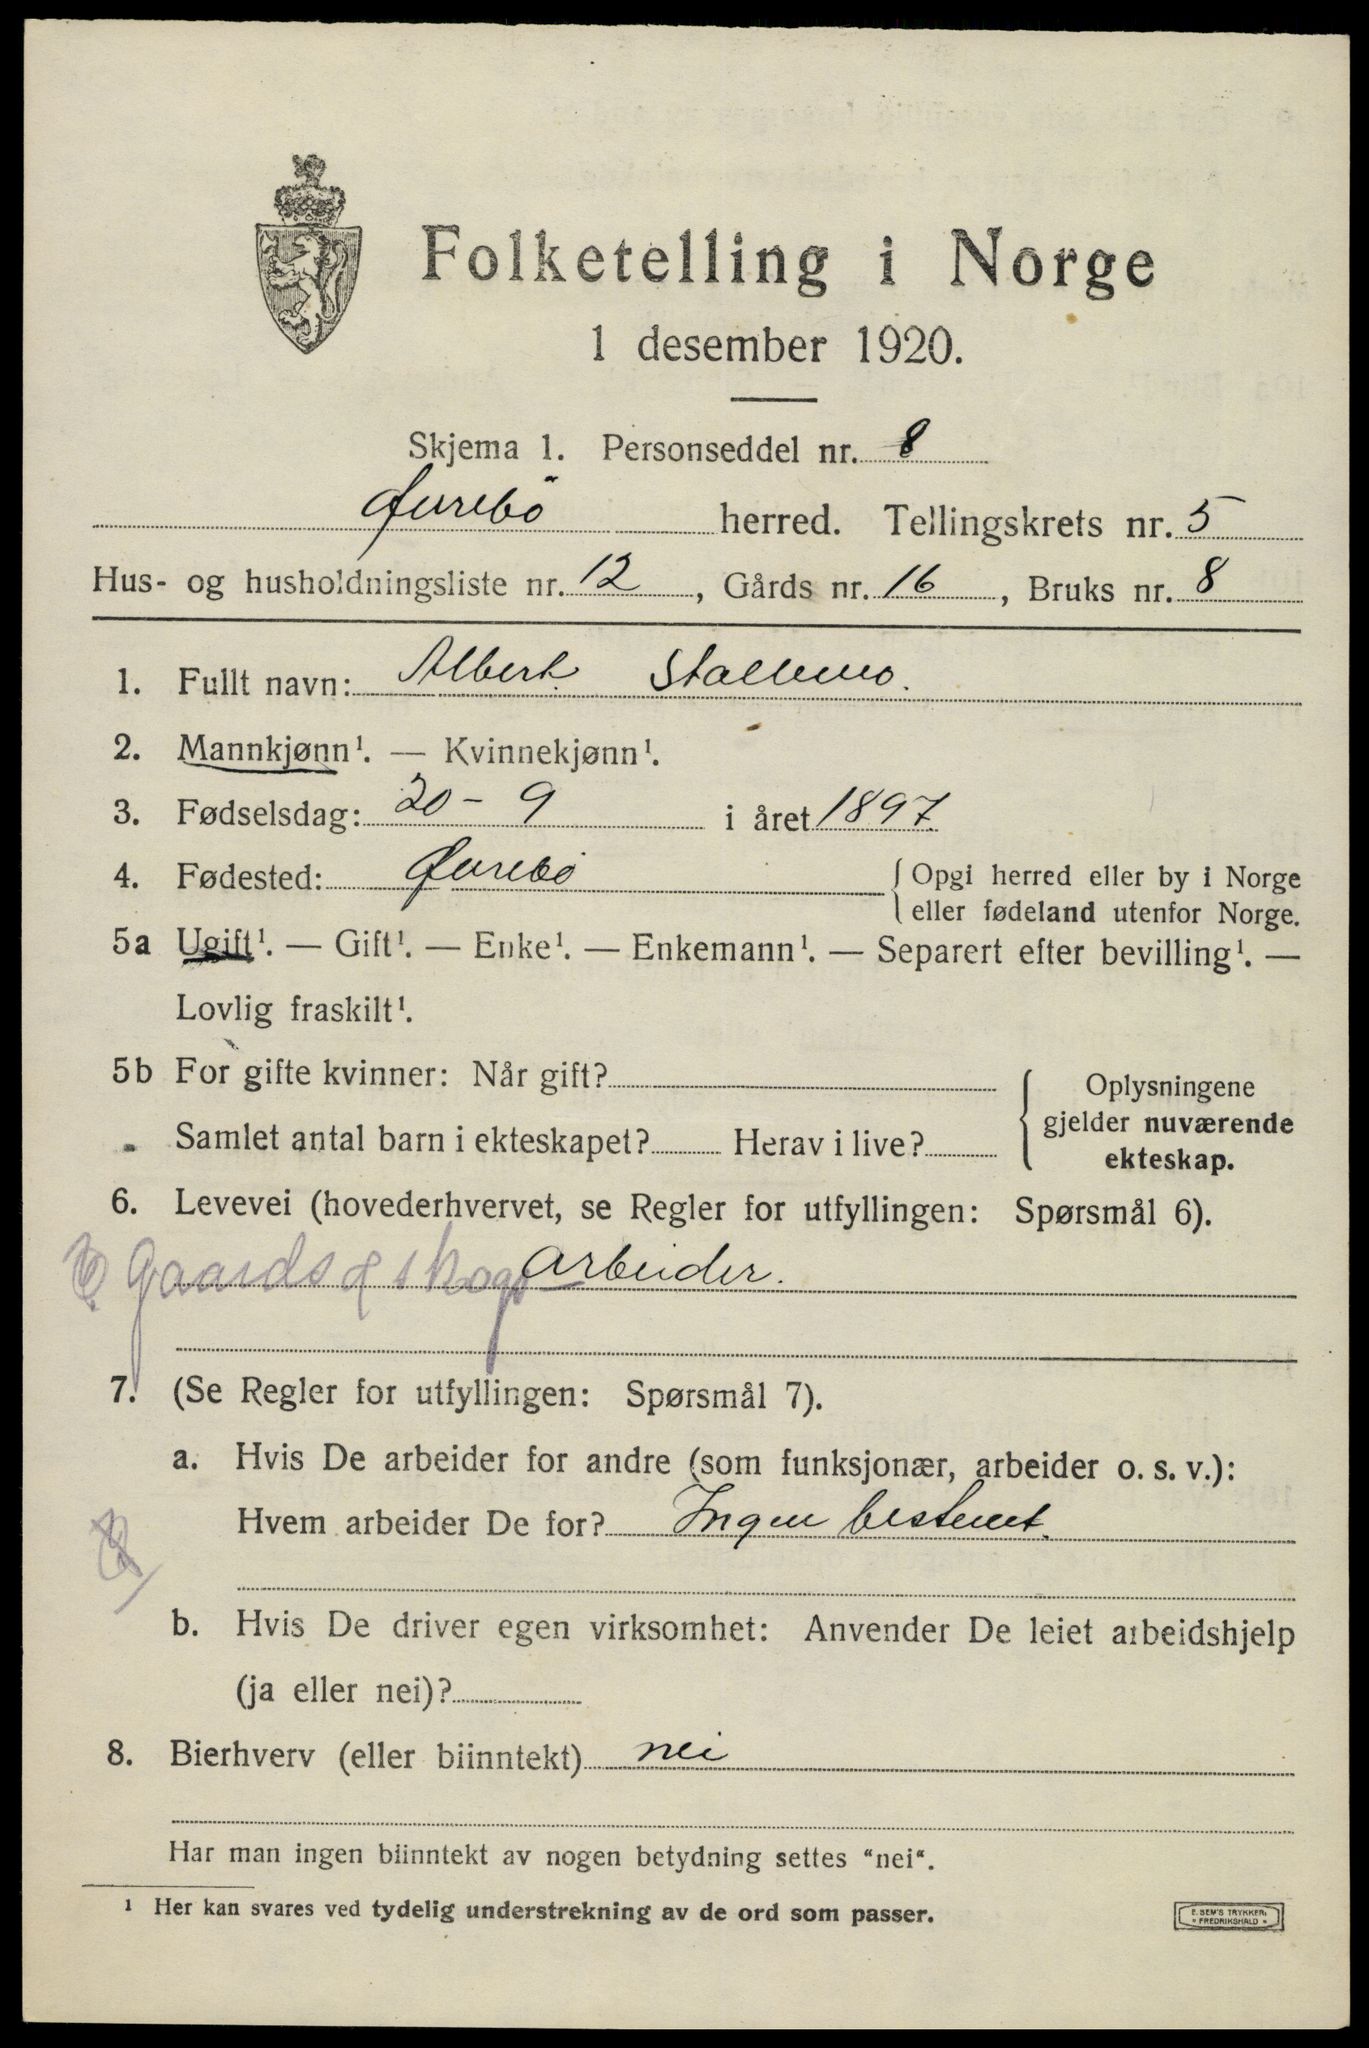 Folketelling i Norge
1 desember 1920.
Skjema 1. Personseddel nr. 8
Øurebö herred. Tellingskrets nr. 5
Hus- og husholdningsliste nr. 12, Gårds nr. 16, Bruks nr. 8
1. Fullt navn: Albert Stallemo.
2. Mannkjønn¹. — Kvinnekjønn¹.
3. Fødselsdag: 20 - 9 i året 1897.
4. Fødested: Øurebö { Opgi herred eller by i Norge
eller fødeland utenfor Norge.
5a Ugift¹. — Gift¹. — Enke¹. — Enkemann¹. — Separert efter bevilling¹. —
Lovlig fraskilt¹.
5b For gifte kvinner: Når gift?
Samlet antal barn i ekteskapet? Herav i live?
{ Oplysningene
gjelder nuværende
ekteskap.
6. Levevei (hovederhvervet, se Regler for utfyllingen: Spørsmål 6).
Gaards & skogs arbeider.
7. (Se Regler for utfyllingen: Spørsmål 7).
a. Hvis De arbeider for andre (som funksjonær, arbeider o. s. v.):
Hvem arbeider De for? Ingen bestemt.
b. Hvis De driver egen virksomhet: Anvender De leiet arbeidshjelp
(ja eller nei)?
8. Bierhverv (eller biinntekt) nei
Har man ingen biinntekt av nogen betydning settes "nei".
¹ Her kan svares ved tydelig understrekning av de ord som passer.
E. SEM'S TRYKKERI
FREDRIKSHALD